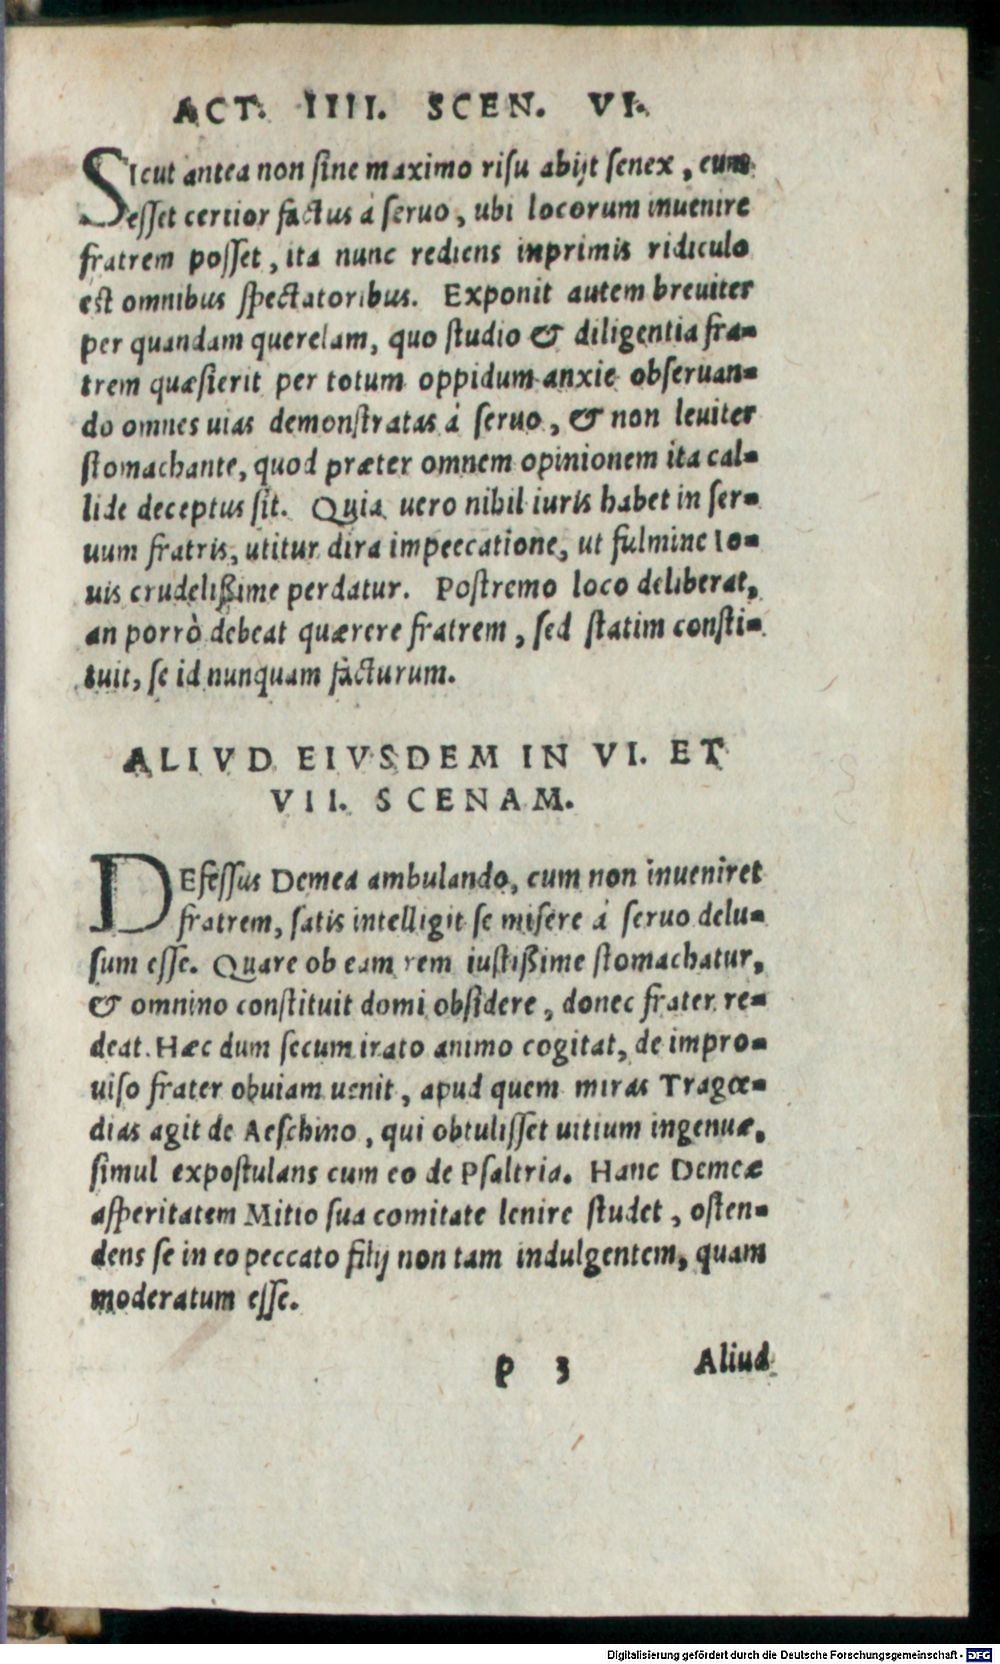 ACT. IIII. SCEN. VI.
SIcut antea non sine maximo risu abijt senex, cum
esset certior factus á seruo, ubi locorum inuenire
fratrem posset, ita nunc rediens inprimis ridiculo
est omnibus spectatoribus. Exponit autem breuiter
per quandam querelam, quo studio & diligentia fra-
trem quæsierit per totum oppidum anxie obseruan-
do omnes uias demonstratas á seruo, & non leuiter
stomachante, quod præter omnem opinionem ita cal-
lide deceptus sit. Quia uero nihil iuris habet in ser-
uum fratris, utitur dira impeecatione, ut fulmine Io-
uis crudelißime perdatur. Postremo loco deliberat,
an porrò debeat quærere fratrem, sed statim consti-
tuit, se id nunquam facturum.
ALIVD EIVSDEM IN VI. ET
VII. SCENAM.
DEfessus Demea ambulando, cum non inueniret
fratrem, satis intelligit se misere á seruo delu-
sum esse. Quare ob eam rem iustißime stomachatur,
& omnino constituit domi obsidere, donec frater re-
deat. Hæc dum secum irato animo cogitat, de impro-
uiso frater obuiam uenit, apud quem miras Tragœ-
dias agit de Aeschino, qui obtulisset uitium ingenuæ,
simul expostulans cum eo de Psaltria. Hanc Demeæ
asperitatem Mitio sua comitate lenire studet, osten-
dens se in eo peccato filij non tam indulgentem, quam
moderatum esse.
P 3 Aliud
Digitalisierung gefördert durch die Deutsche Forschungsgemeinschaft - DFG